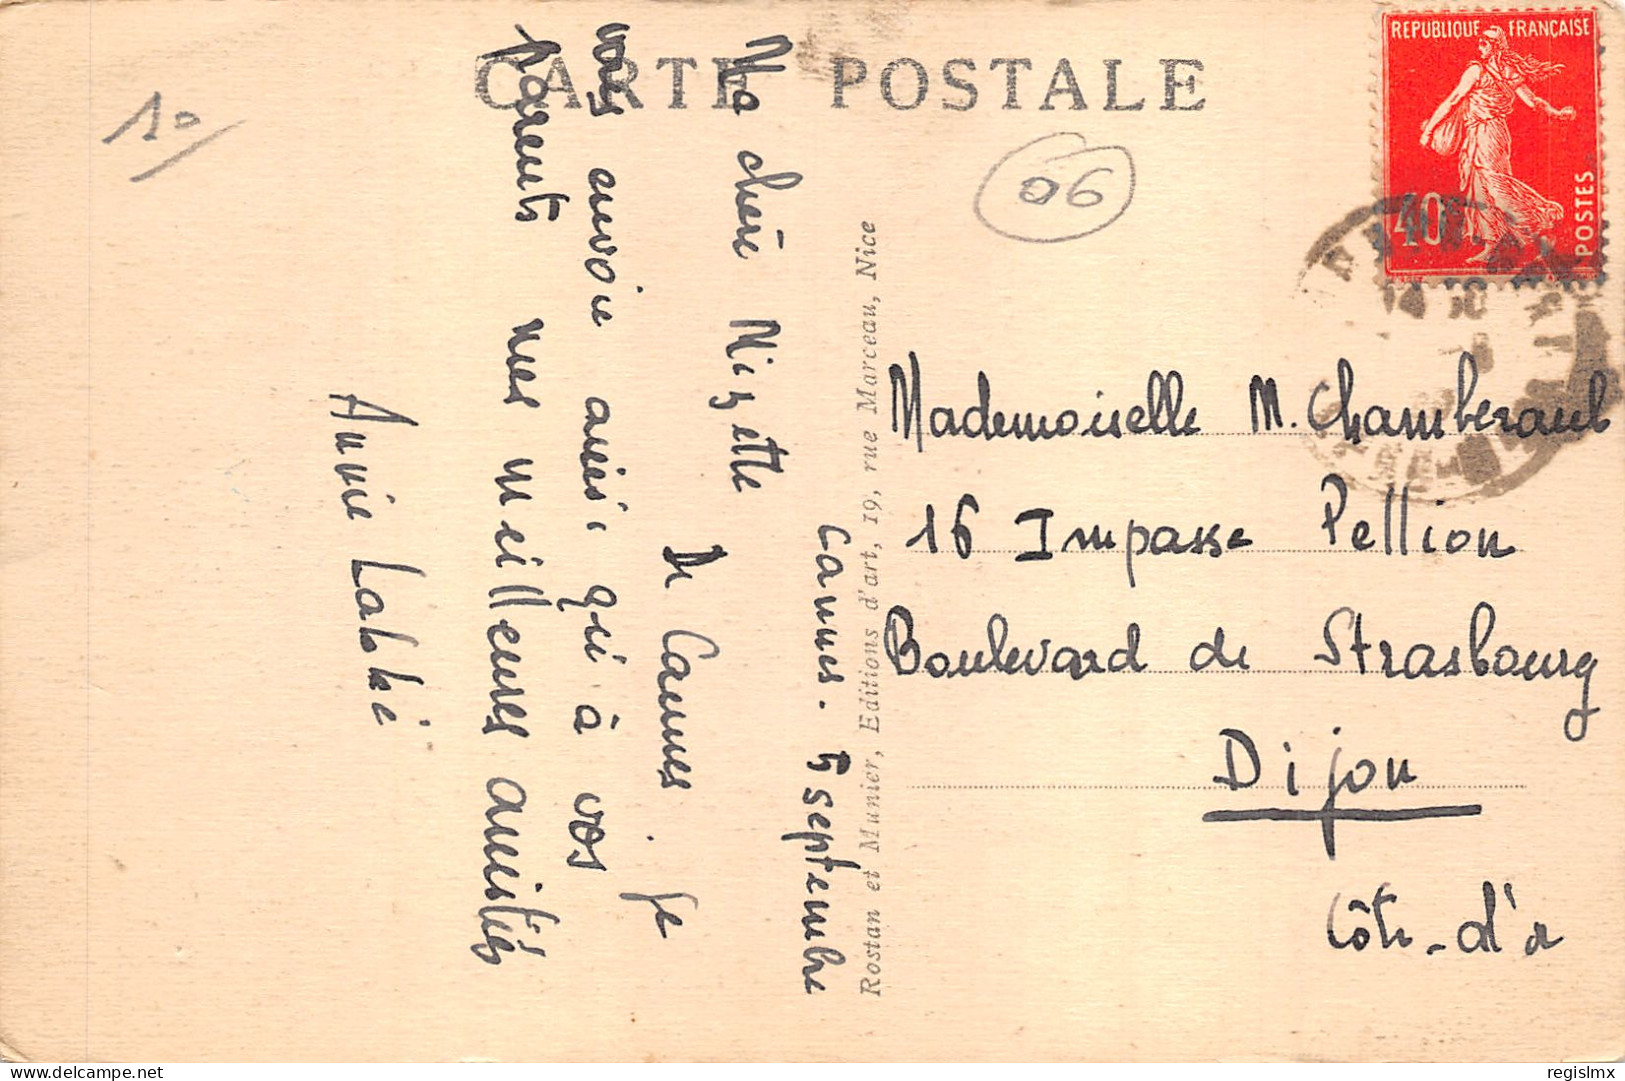 CARTE POSTALE
REPUBLIQUE FRANÇAISE
40c
POSTES
10
06
Cannes. 5 septembre
Ma chère Mizette
De Cannes. Je
vous envoie ainsi qu'à vos
parents mes meilleures amitiés
Annie Labbé
Rostan et Munier, Editions d'art, 19, rue Marceau, Nice
Mademoiselle M. Chamberaut
16 Impasse Pellion
Boulevard de Strasbourg
Dijon
Côte-d'or
delcampe.net
regislmx